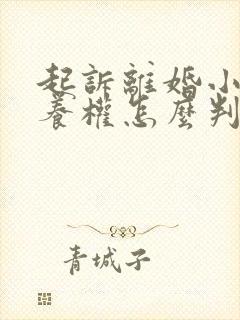 起訴離婚小
養權怎麼判
青城子